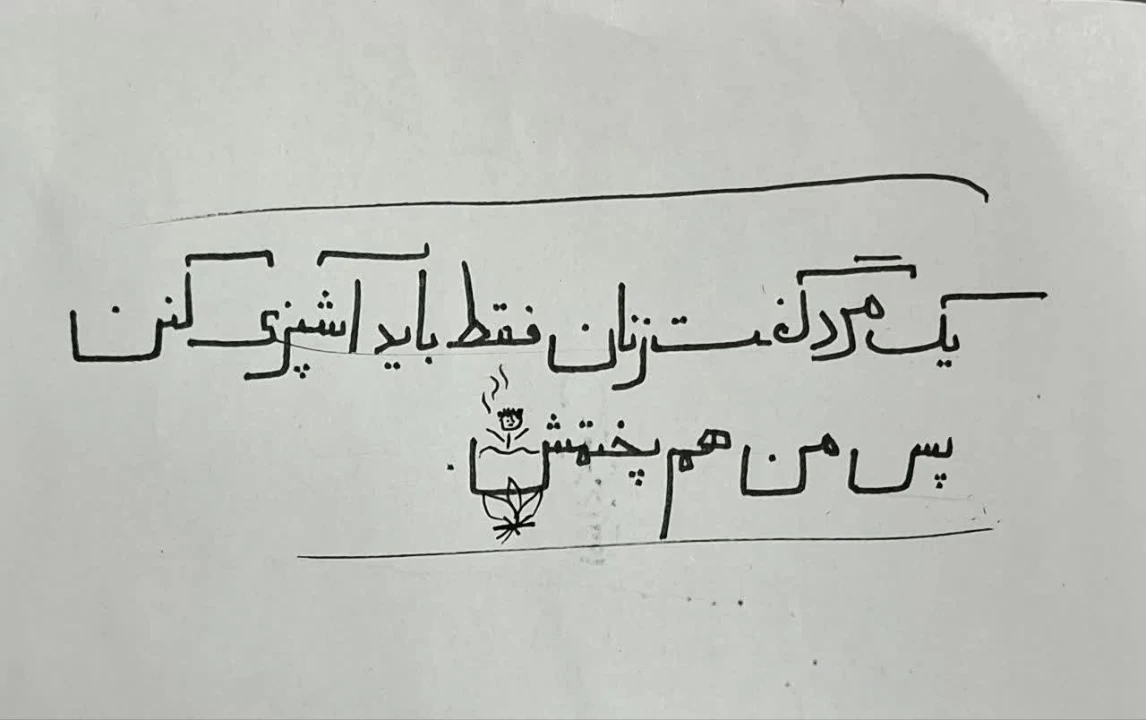 یک مرد گفت زنان فقط باید آشپزی کنن
پس من هم پختمش.